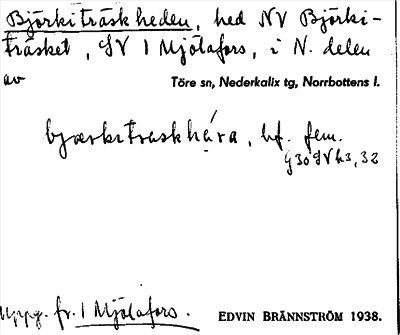 Björkiträskheden, hed NV Björki-
träsket, SV 1 Mjölafors, i N. delen
av Töre sn, Nederkalix tg, Norrbottens l.
bf. fem.
G30SVh3, 32
Uppg. fr. 1 Mjölafors. EDVIN BRÄNNSTRÖM 1938.